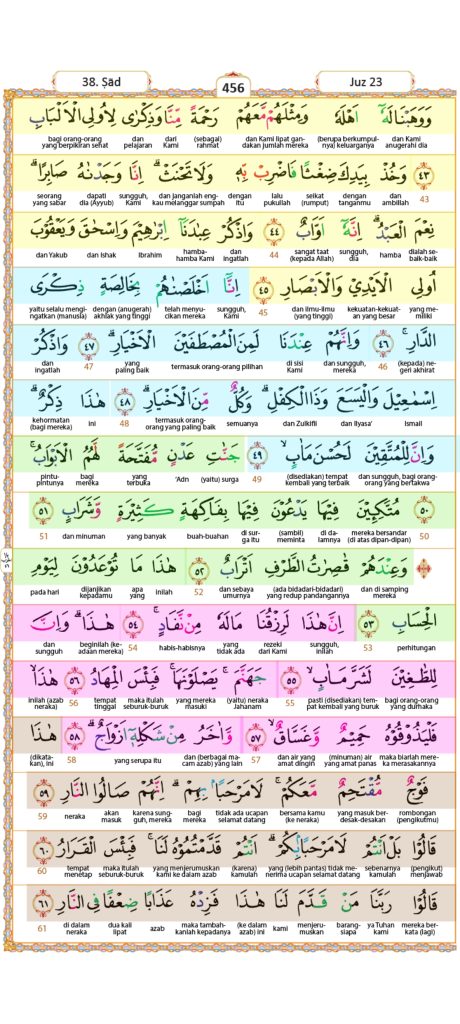 38. Ṣād
456
Juz 23
وَوَهَبْنَا لَهٗٓ اَهْلَهٗ وَمِثْلَهُمْ مَّعَهُمْ رَحْمَةً مِّنَّا وَذِكْرٰى لِاُولِى الْاَلْبَابِ
bagi orang-orang dan dari (sebagai) dan Kami lipat gan- (berupa berkumpul- dan Kami
yang berpikiran sehat pelajaran Kami rahmat dakan jumlah mereka nya) keluarganya anugerahi dia
٤٣ وَخُذْ بِيَدِكَ ضِغْثًا فَاضْرِبْ بِّهٖ وَلَا تَحْنَثْ ۗ اِنَّا وَجَدْنٰهُ صَابِرًا ۗ
seorang dapati sungguh, dan Janganlah eng- dengan lalu seikat dengan dan
yang sabar dia (Ayyub) Kami kau melanggar sumpah itu pukullah (rumput) tanganmu ambillah 43
نِعْمَ الْعَبْدُ ۗ اِنَّهٗٓ اَوَّابٌ ٤٤ وَاذْكُرْ عِبٰدَنَآ اِبْرٰهِيْمَ وَاِسْحٰقَ وَيَعْقُوْبَ
dan Yakub dan Ishak Ibrahim hamba- dan sangat taat sungguh, hamba dialah se-
hamba Kami ingatlah 44 (kepada Allah) dia baik-baik
اُولِى الْاَيْدِيْ وَالْاَبْصَارِ ٤٥ اِنَّآ اَخْلَصْنٰهُمْ بِخَالِصَةٍ ذِكْرَى
yaitu selalu mengi- dengan (anugerah) telah menyu- sungguh, dan ilmu-ilmu kekuatan-kekuat- yang me-
ngatkan (manusia) akhlak yang tinggi cikan mereka Kami 45 (yang tinggi) an yang besar miliki
الدَّارِۚ ٤٦ وَاِنَّهُمْ عِنْدَنَا لَمِنَ الْمُصْطَفَيْنَ الْاَخْيَارِۗ ٤٧ وَاذْكُرْ
dan yang termasuk orang-orang pilihan di sisi dan sungguh, (kepada) ne-
ingatlah 47 paling baik Kami mereka 46 geri akhirat
اِسْمٰعِيْلَ وَالْيَسَعَ وَذَا الْكِفْلِ ۗ وَكُلٌّ مِّنَ الْاَخْيَارِۗ ٤٨ هٰذَا ذِكْرٌ ۗ
kehormatan ini termasuk orang- semuanya dan Zulkifli dan Ilyasa' Ismail
(bagi mereka) 48 orang yang paling baik
وَاِنَّ لِلْمُتَّقِيْنَ لَحُسْنَ مَاٰبٍۙ ٤٩ جَنّٰتِ عَدْنٍ مُّفَتَّحَةً لَّهُمُ الْاَبْوَابُۚ
pintu- bagi yang 'Adn (yaitu) surga (disediakan) tempat dan sungguh, bagi orang-
pintunya mereka terbuka 49 kembali yang terbaik orang yang bertakwa
٥٠ مُتَّكِـِٕيْنَ فِيْهَا يَدْعُوْنَ فِيْهَا بِفَاكِهَةٍ كَثِيْرَةٍ وَّشَرَابٍ ٥١
51 dan minuman yang banyak buah-buahan di sur- (sambil) di da- mereka bersandar
ga itu meminta lamnya (di atas dipan-dipan) 50
وَعِنْدَهُمْ قٰصِرٰتُ الطَّرْفِ اَتْرَابٌ ٥٢ هٰذَا مَا تُوْعَدُوْنَ لِيَوْمِ
pada hari dijanjikan apa inilah dan sebaya (ada bidadari-bidadari) dan di samping
kepadamu yang 52 umurnya yang redup pandangannya mereka
الْحِسَابِ ٥٣ اِنَّ هٰذَا لَرِزْقُنَا مَا لَهٗ مِنْ نَّفَادٍۚ ٥٤ هٰذَا ۗ وَاِنَّ
dan beginilah (ke- habis-habisnya yang rezeki sungguh, perhitungan
sungguh adaan mereka) 54 tidak ada dari Kami inilah 53
لِلطّٰغِيْنَ لَشَرَّ مَاٰبٍۙ ٥٥ جَهَنَّمَۚ يَصْلَوْنَهَاۚ فَبِئْسَ الْمِهَادُ ٥٦ هٰذَاۙ
inilah (azab tempat maka itulah yang mereka (yaitu) neraka pasti (disediakan) tem- bagi orang-orang
neraka) 56 tinggal seburuk-buruk masuki Jahanam 55 pat kembali yang buruk yang durhaka
فَلْيَذُوْقُوْهُ حَمِيْمٌ وَّغَسَّاقٌۙ ٥٧ وَّاٰخَرُ مِنْ شَكْلِهٖٓ اَزْوَاجٌۗ ٥٨ هٰذَا
(dikata- yang serupa itu dan (berbagai ma- dan air yang (minuman) air maka biarlah mere-
kan), ini 58 cam azab) yang lain 57 amat dingin yang amat panas ka merasakannya
فَوْجٌ مُّقْتَحِمٌ مَّعَكُمْۚ لَا مَرْحَبًاۢ بِهِمْ ۗ اِنَّهُمْ صَالُوا النَّارِ ٥٩
neraka akan karena sung- bagi tidak ada ucapan bersama kamu yang masuk ber- rombongan
59 masuk guh, mereka mereka selamat datang (ke neraka) desak-desakan (pengikutmu)
قَالُوْا بَلْ اَنْتُمْ لَا مَرْحَبًاۢ بِكُمْ ۗ اَنْتُمْ قَدَّمْتُمُوْهُ لَنَاۚ فَبِئْسَ الْقَرَارُ ٦٠
tempat maka itulah yang menjerumuskan (karena) yang (lebih pantas) tidak me- sebenarnya (pengikut)
60 menetap seburuk-buruk kami ke dalam azab kamulah nerima ucapan selamat datang kamulah menjawab
قَالُوْا رَبَّنَا مَنْ قَدَّمَ لَنَا هٰذَا فَزِدْهُ عَذَابًا ضِعْفًا فِى النَّارِ ٦١
di dalam dua kali azab maka tambah- (ke dalam kami menje- barang- ya Tuhan mereka ber-
61 neraka lipat kanlah kepadanya azab) ini rumuskan siapa kami kata (lagi)